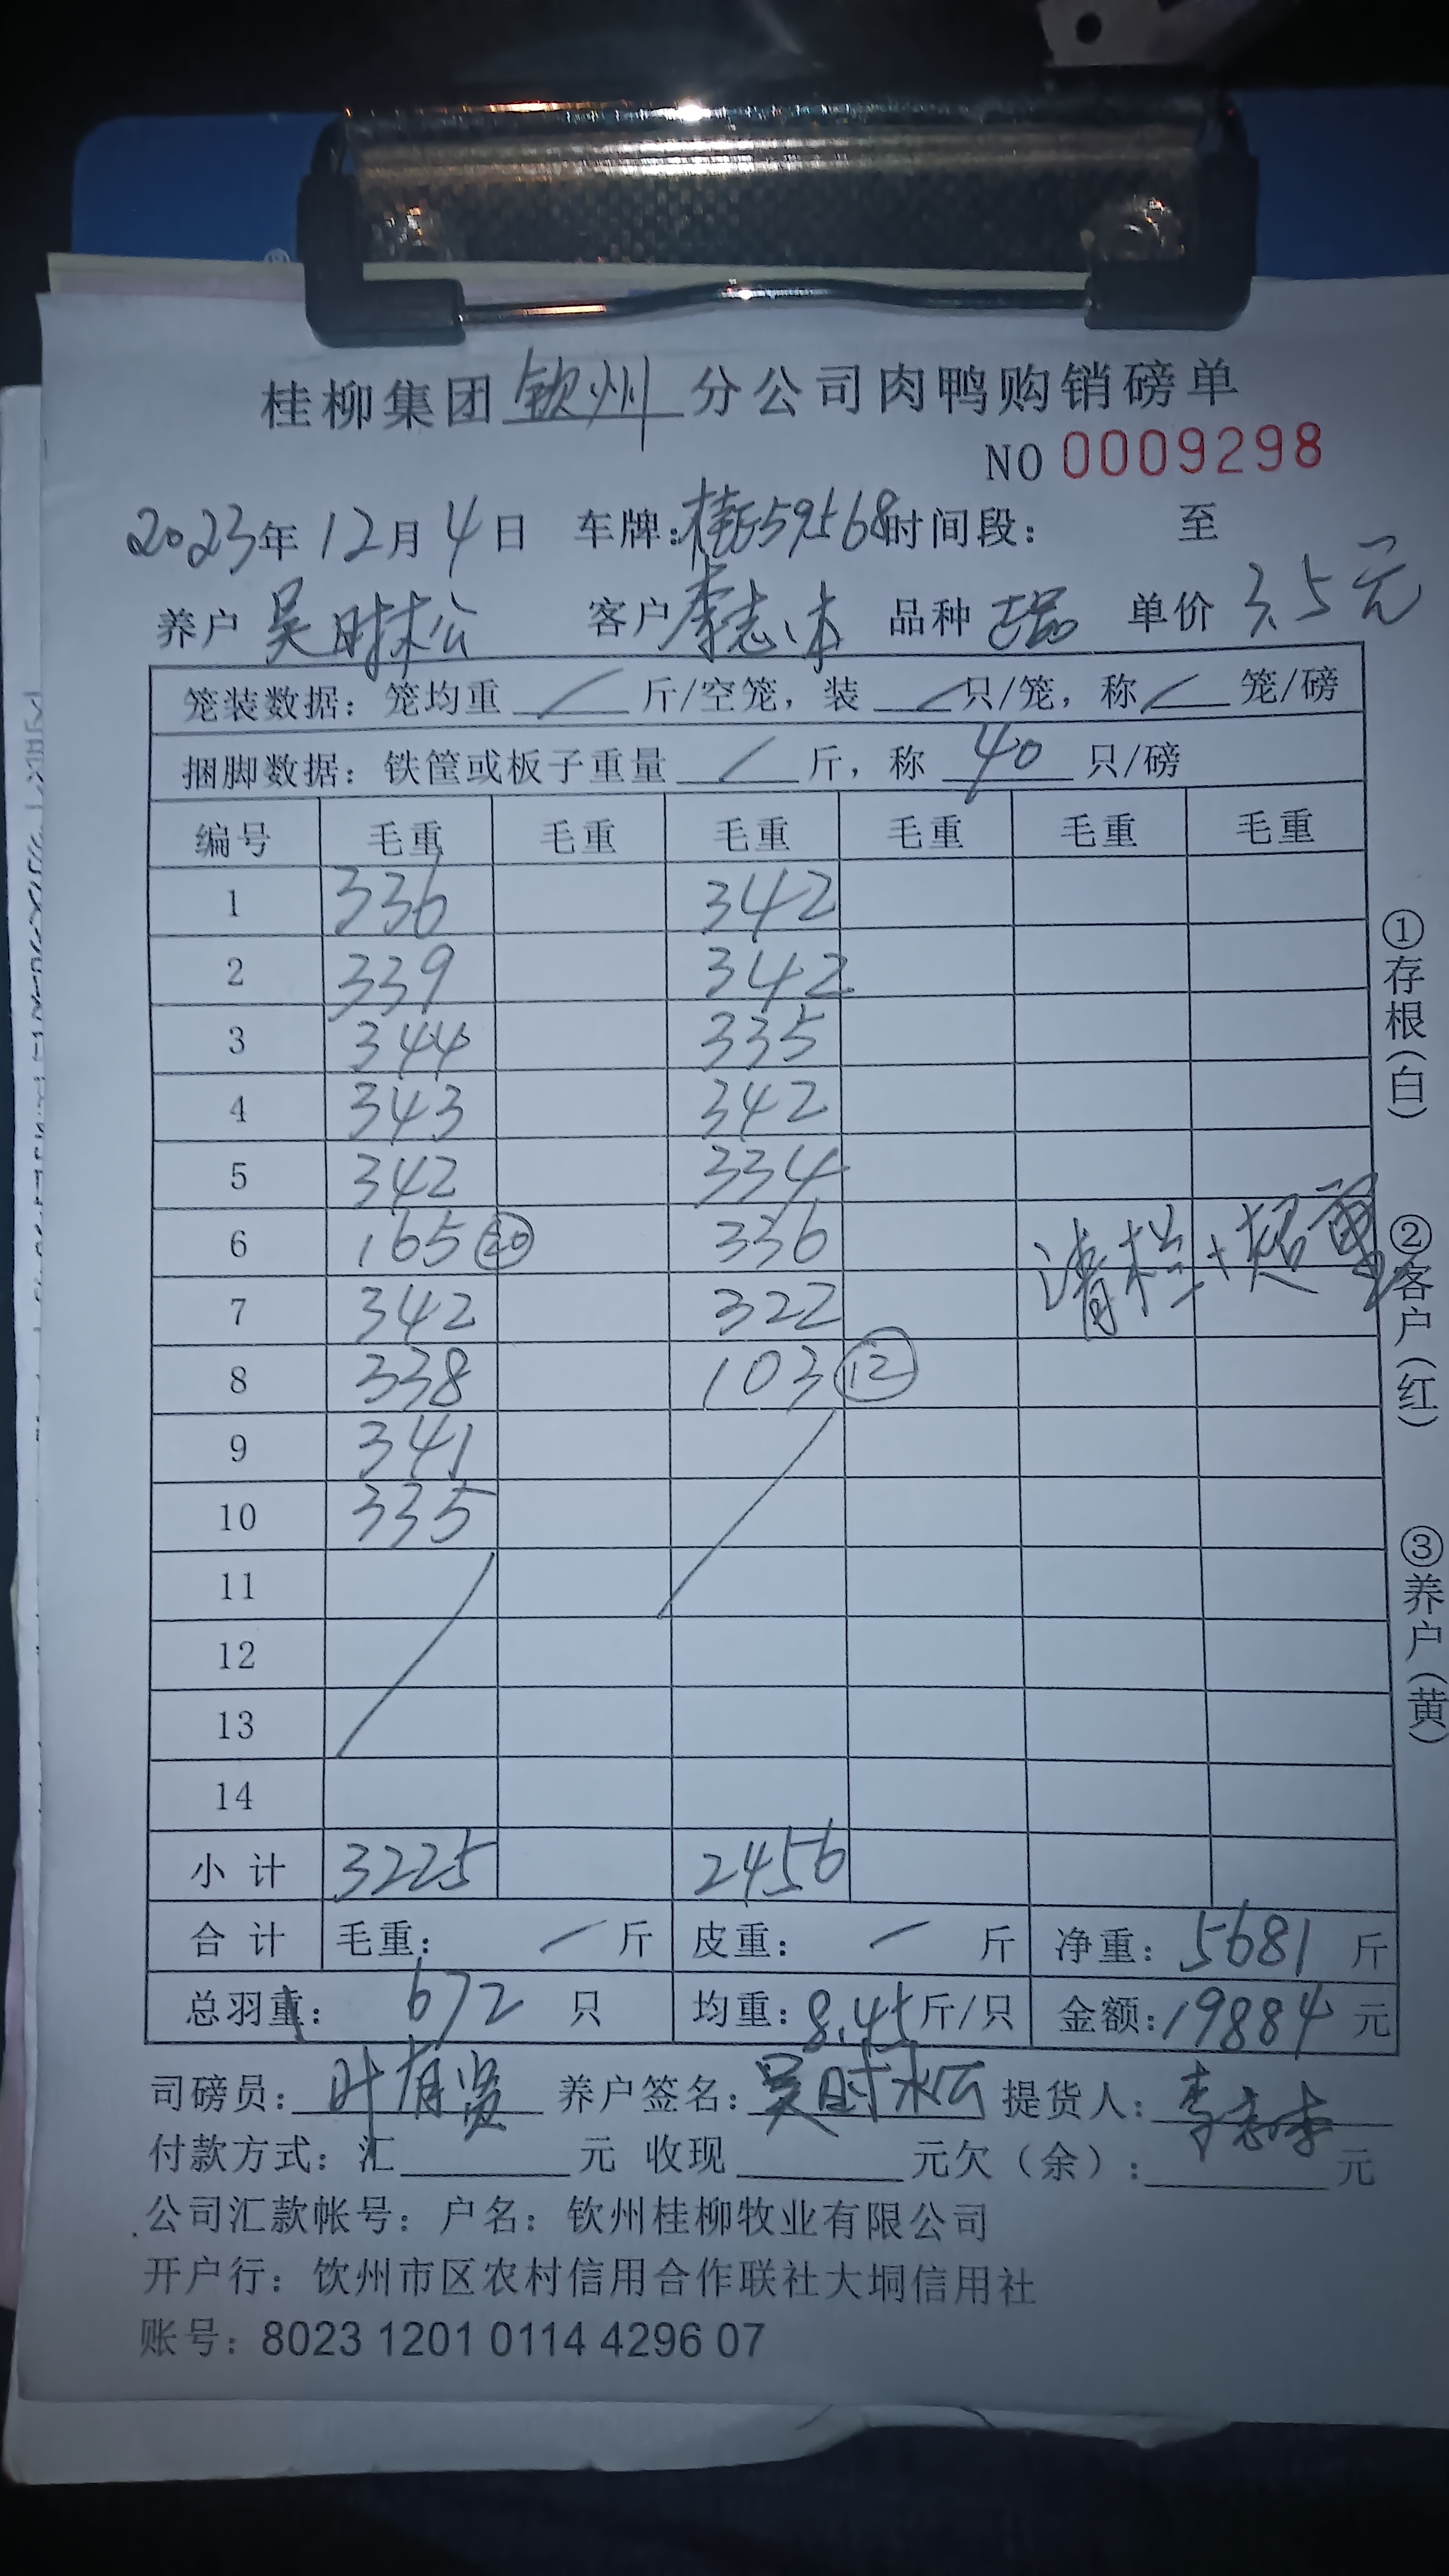 桂柳集团 钦州 分公司肉鸭购销磅单
NO 0009298
2023年 12月 4日 车牌:桂E59568 时间段: 至
养户 吴时松 客户 李志本 品种 正品 单价 3.5元
笼装数据: 笼均重 / 斤/空笼, 装 / 只/笼, 称 / 笼/磅
捆脚数据: 铁筐或板子重量 / 斤, 称 40 只/磅
编号 毛重 毛重 毛重 毛重 毛重 毛重
1 336 342
2 339 342
3 344 335
4 343 342
5 342 334
6 165 ⑳ 336 清栏+超重
7 342 322
8 338 103 ⑫
9 341
10 335
11
12
13
14
小计 3225 2456
合计 毛重: / 斤 皮重: / 斤 净重: 5681 斤
总羽重: 672 只 均重: 8.45 斤/只 金额: 19884 元
司磅员: 叶有贤 养户签名: 吴时松 提货人: 李志本
付款方式: 汇 元 收现 元欠(余): 元
公司汇款帐号: 户名: 钦州桂柳牧业有限公司
开户行: 钦州市区农村信用合作联社大垌信用社
账号: 8023 1201 0114 4296 07
①存根(白)
②客户(红)
③养户(黄)